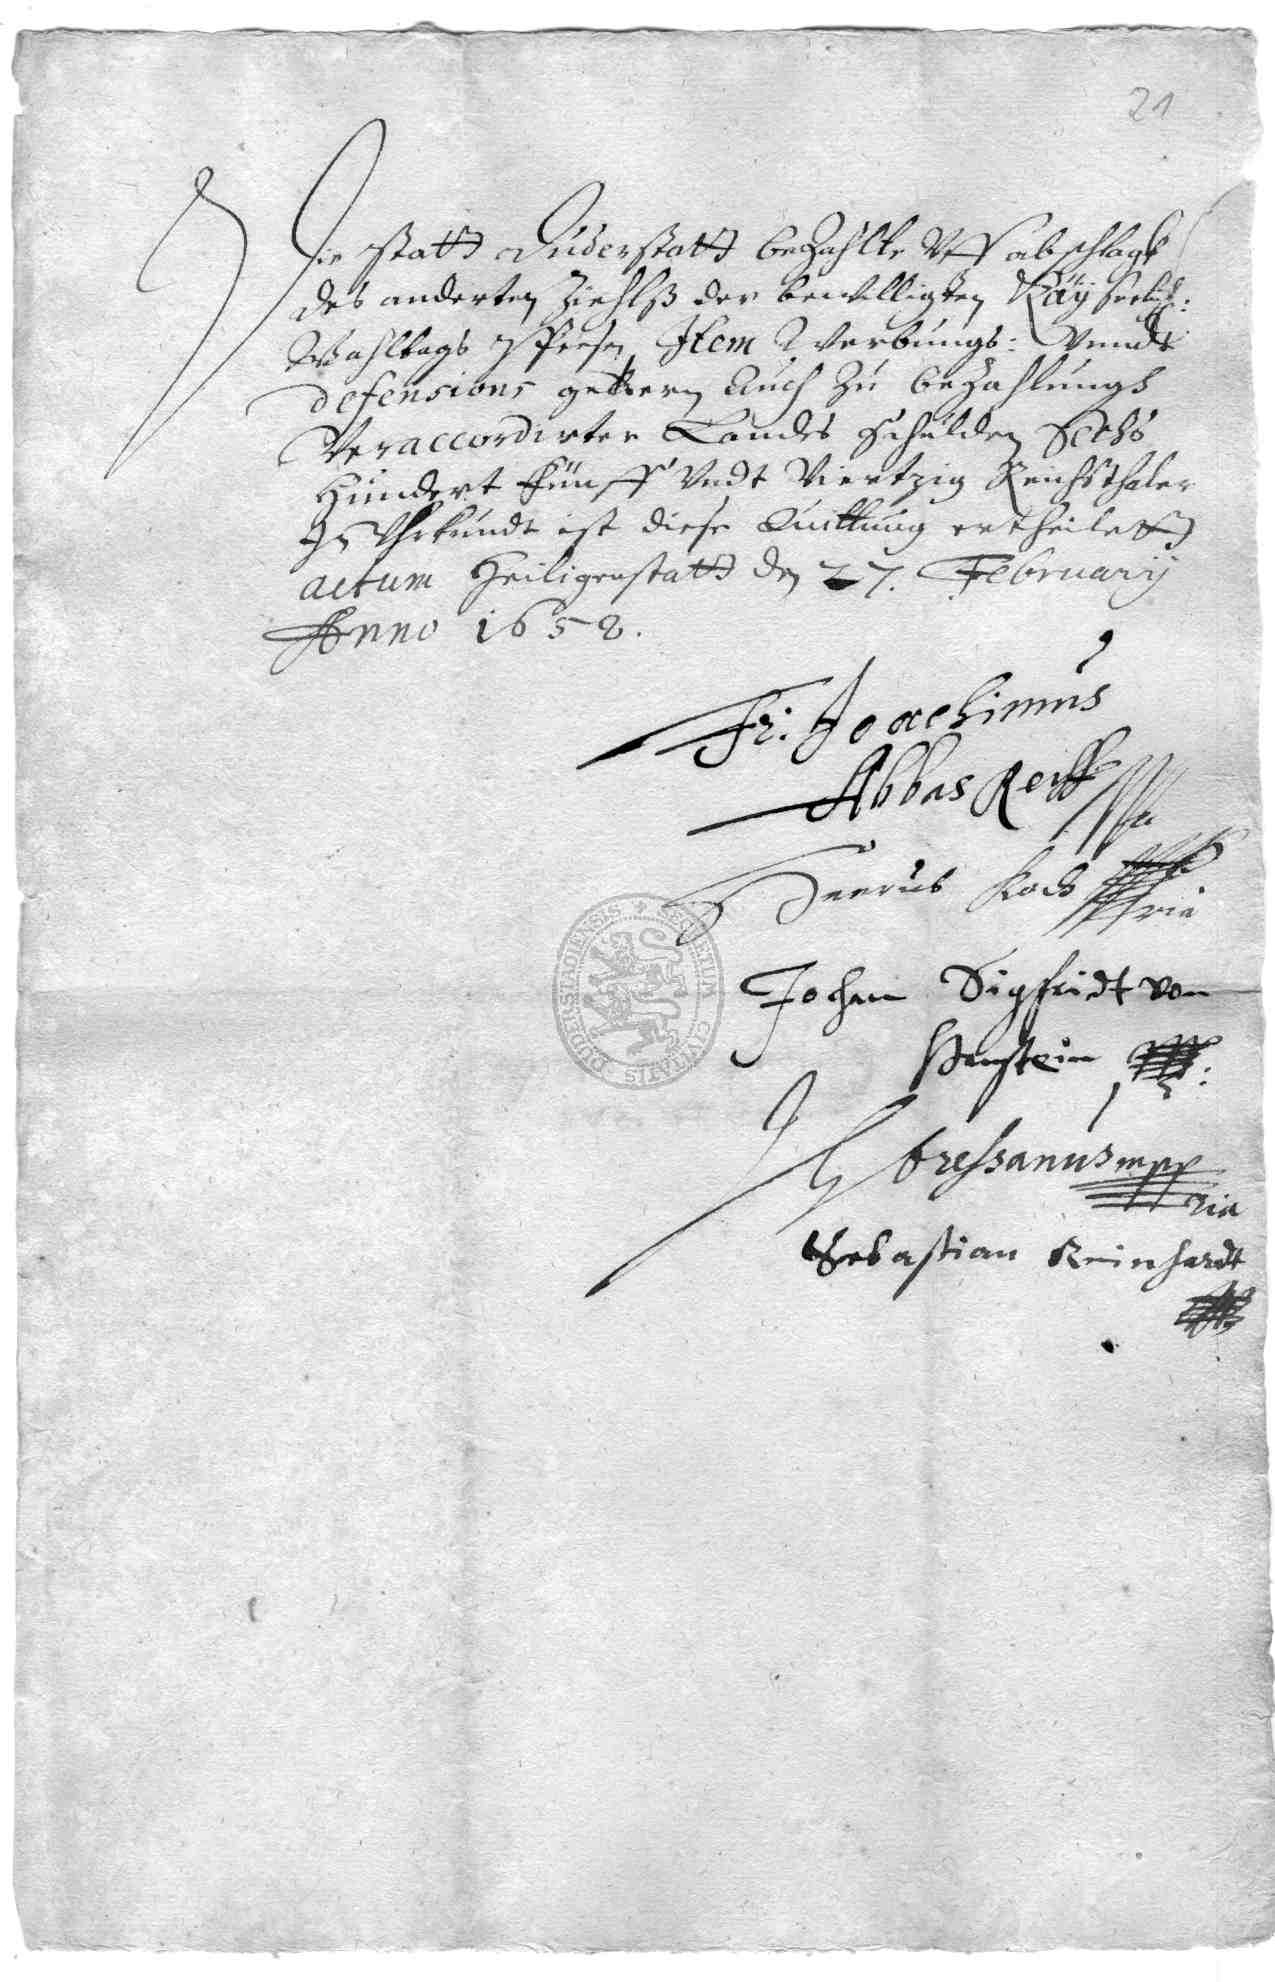 21
Die Statt Duderstatt bezahlte Uff abschlagk
des anderten Ziehlß der bewilligten Kaÿserlich:
Wahltags Item Werbungs: Unndt
defensions geltern Auch Zu bezahlungs
Veraccordirter Landes schulden Sechs
Hundert Fünff Undt Viertzig Reichsthaler
In Uhrkundt ist diese Quittung ertheilett
actum Heiligenstatt den 27. Februarÿ
Anno 1658.
Fr: Joachimus
Abbas Reiff
Koch
Jochim Sigfridt von
Hanstein
mpp
ria
Sebastian Reinhardt
SECRETUM CIVITATIS DUDERSTADIENSIS